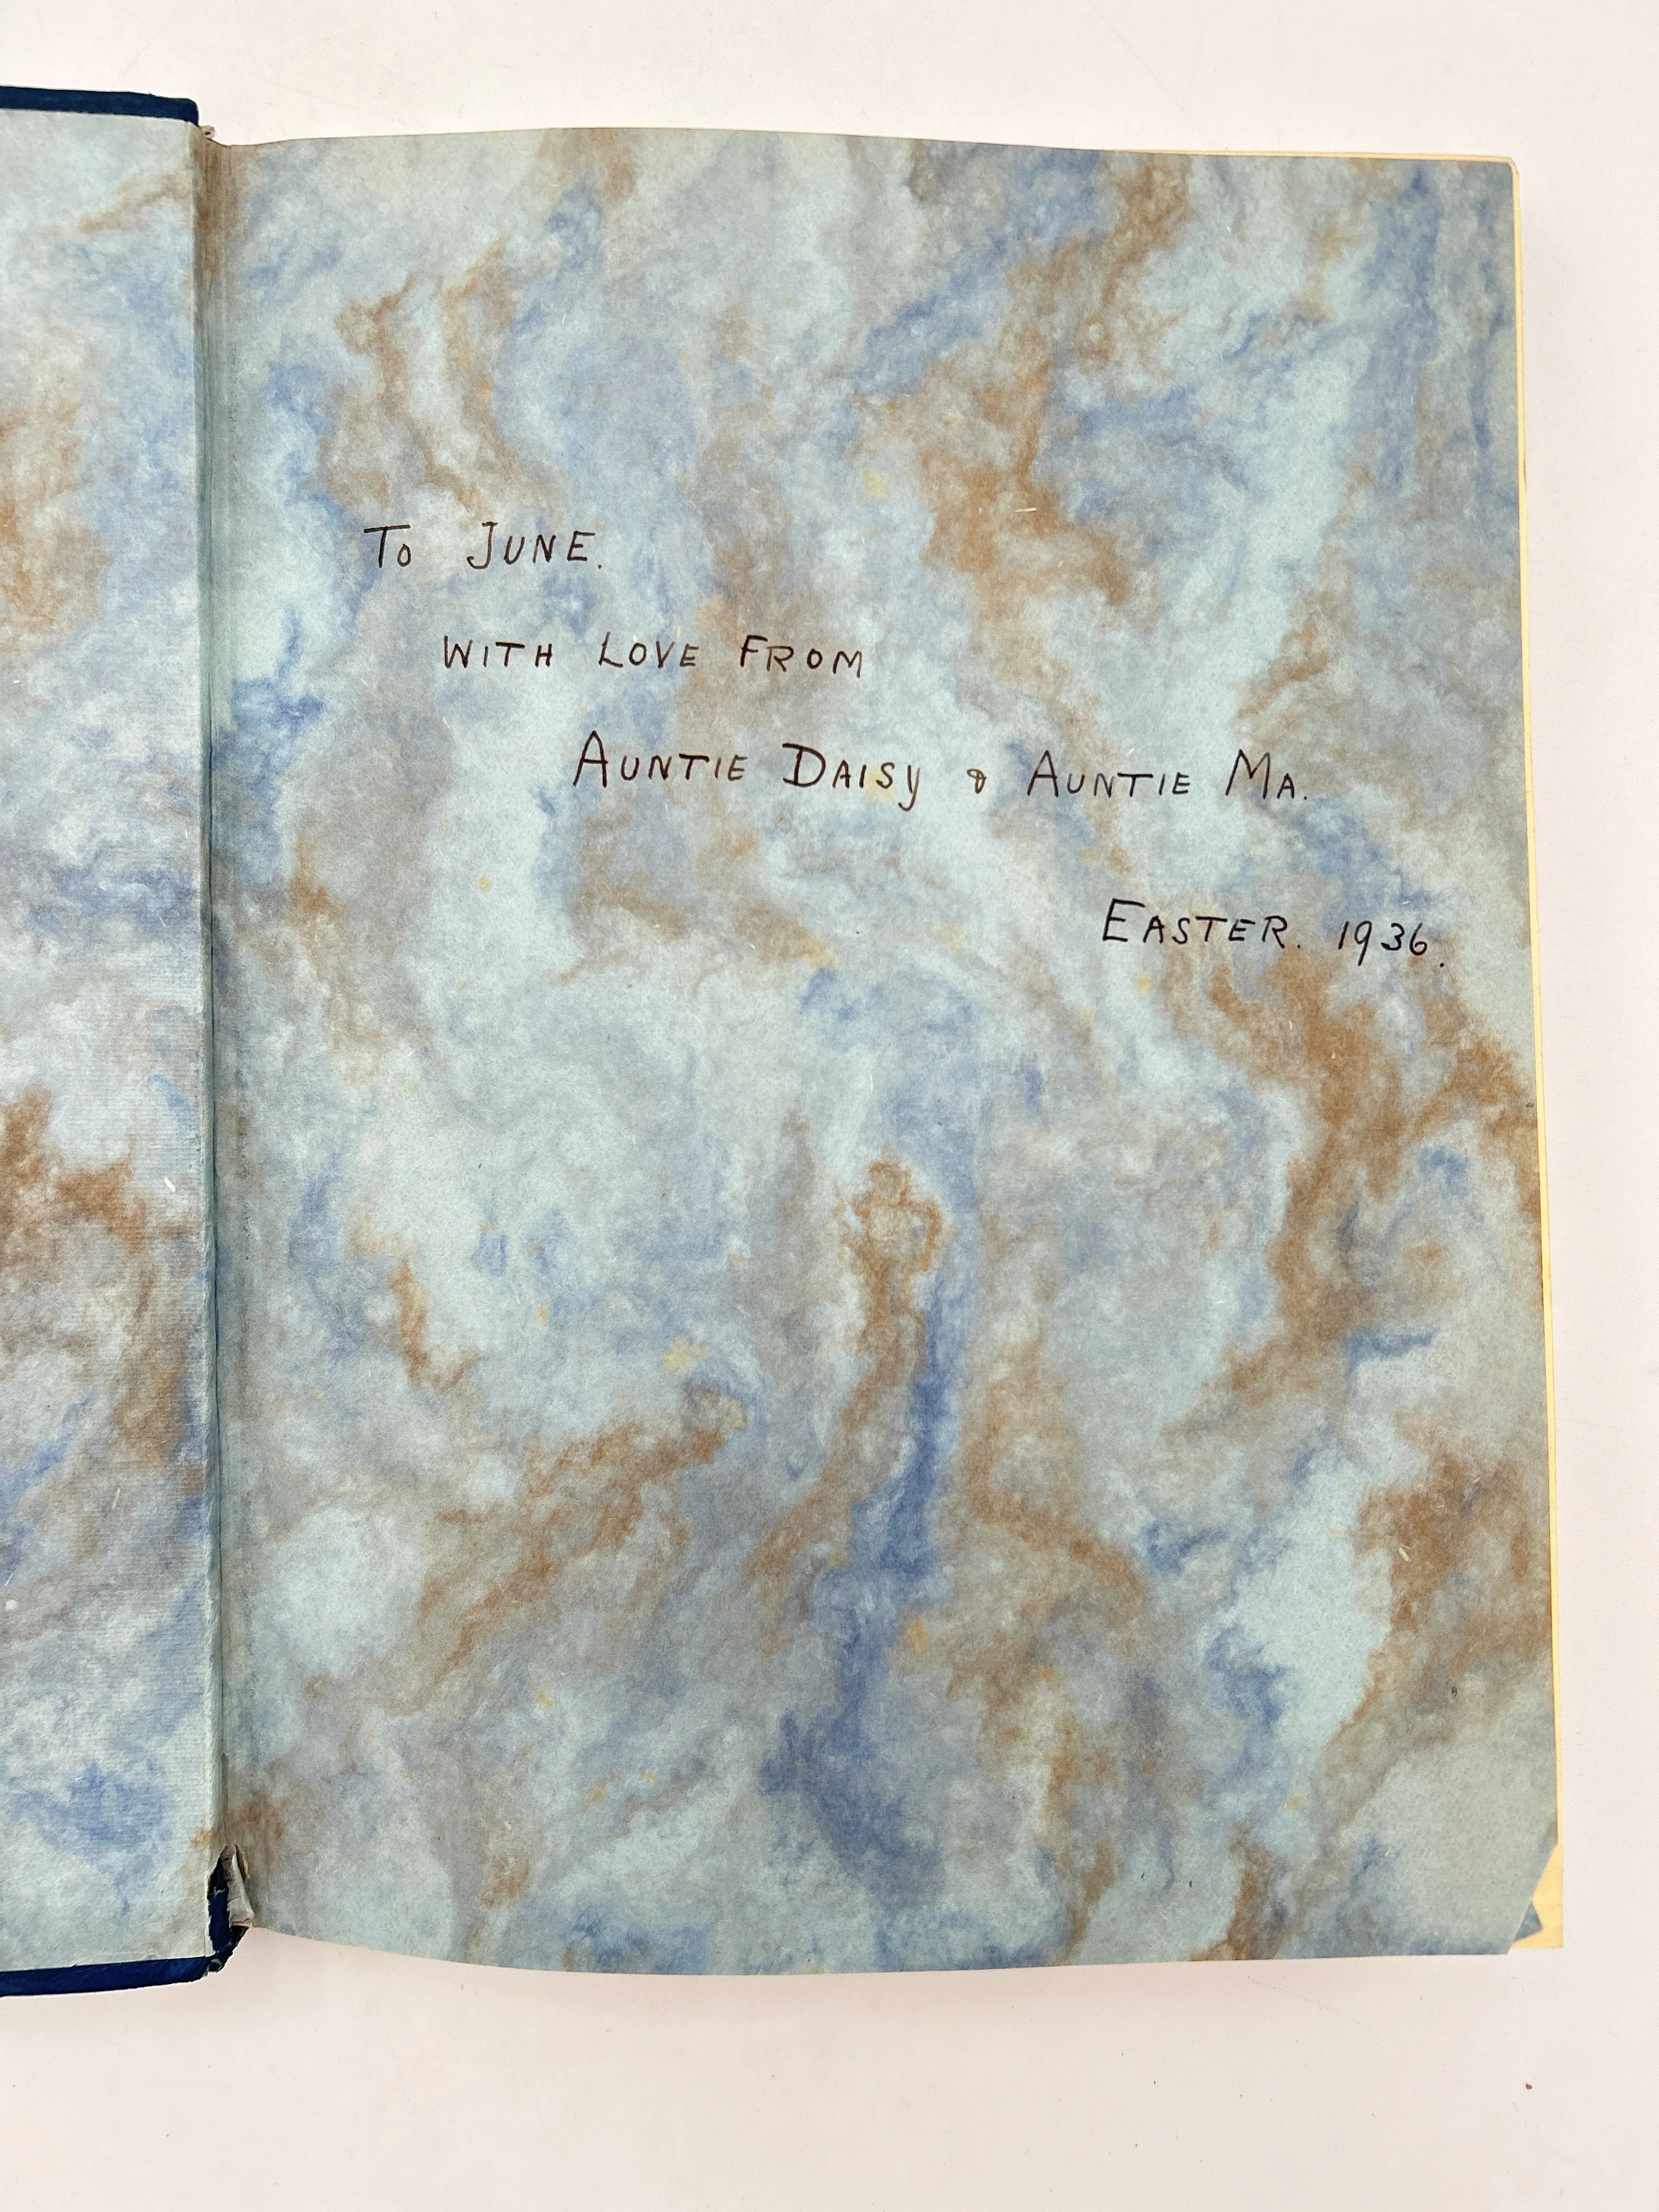 To JUNE.
WITH LOVE FROM
AUNTIE DAISY & AUNTIE MA.
EASTER. 1936.